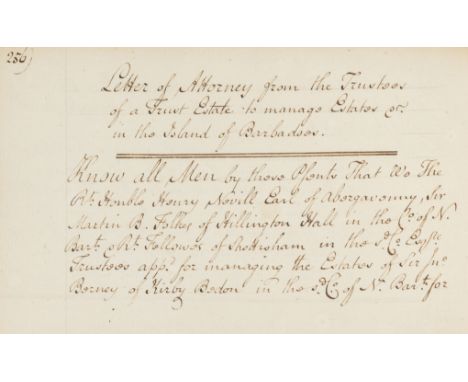 286)
Letter of Attorney from the Trustees
of a Trust Estate to manage Estates &c.
in the Island of Barbadoes.
Know all Men by these Psents That We The
Rt. Honble Henry Nevill Earl of Abergavenny, Sir
Martin B. Folkes of Hillington Hall in the Co of N.
Bart. & Rt. Fellowes of Shottisham in the sd. Co Esqre
Trustees appd. for managing the Estates of Sir Jno
Berney of Kirby Bedon in the sd. Co. of N. Bart. for